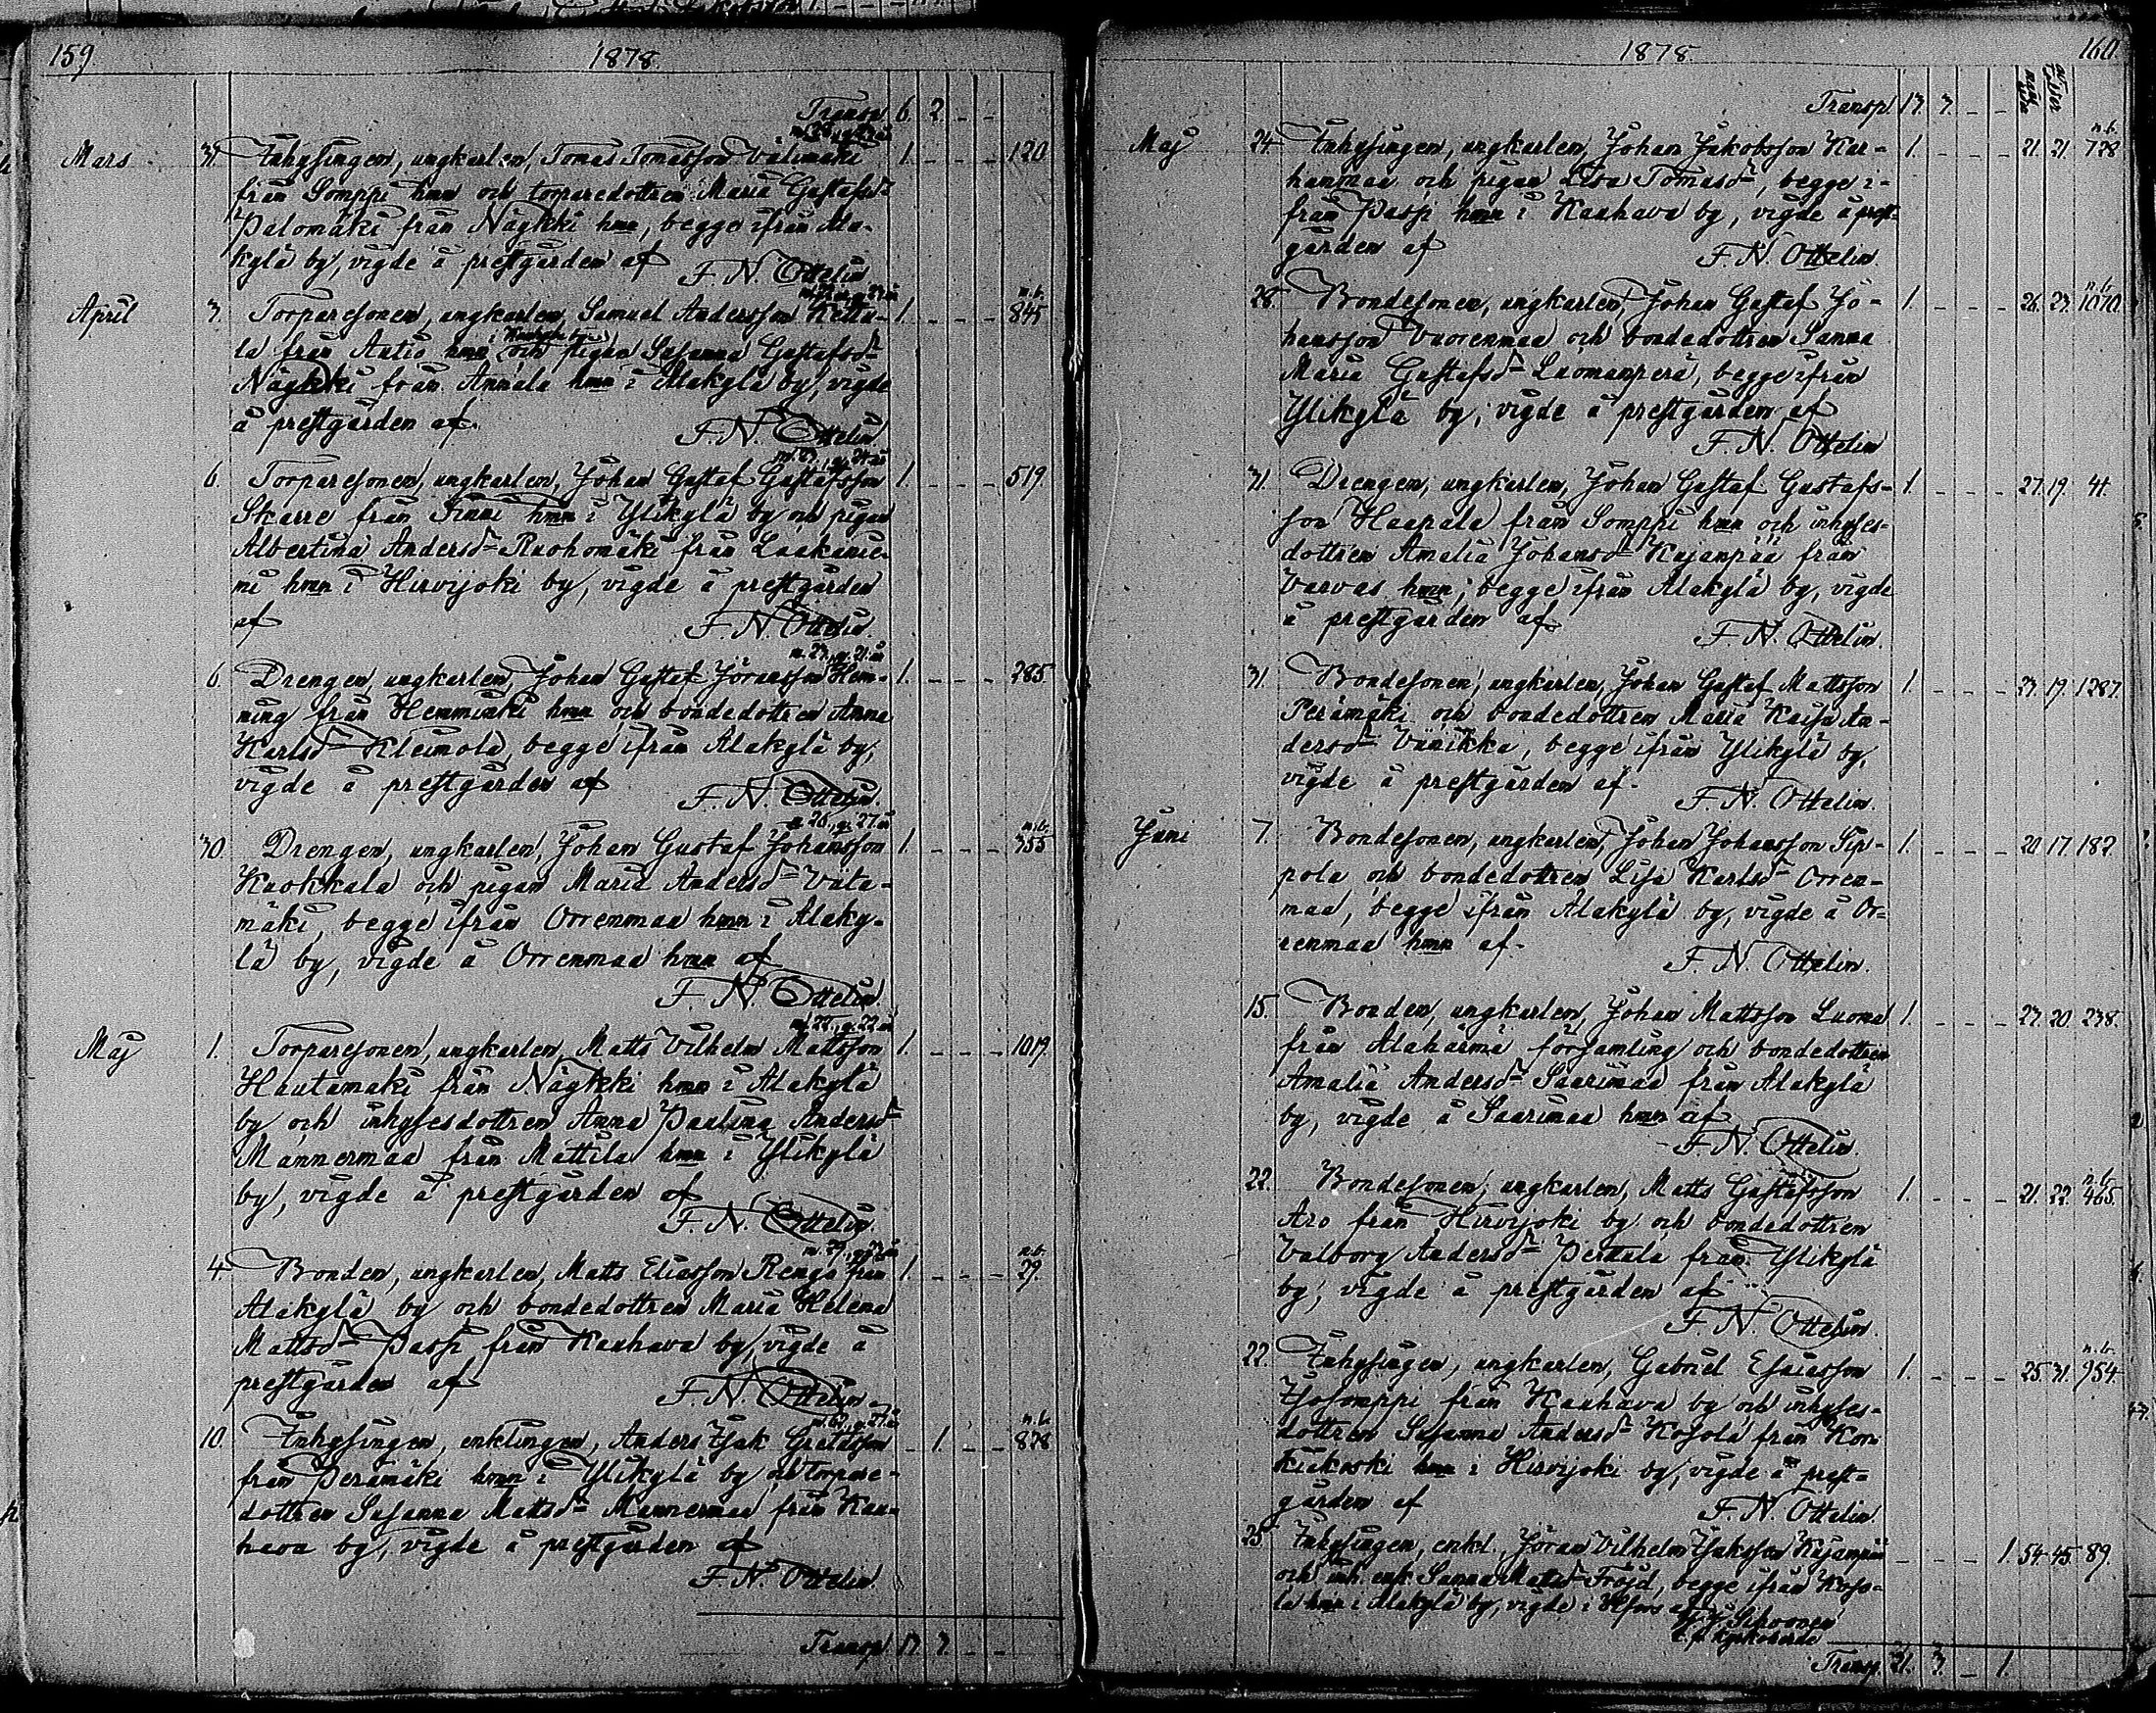 159
1878.
Transp. 6. 2 – –
m. 28, q. 22 år
Mars 31. Inhysingen, ungkarlen, Tomas Tomasson Välimäki 1. – – – 120
från Somppi hmn och torparedottren Maria Gustafsdr
Palomäki från Nägkki hmn, begge ifrån Ala-
kylä by, vigde å prestgården af F. N. Ottelin
n.b.
April 3. Torparesonen, ungkarlen, Samuel Andersson Kettu- 1. – – – 845
la från Antio hmn och pigan Susanna Gustafsdr
Nägkki från Annala hmn i Alakylä by, vigde
å prestgården af F. N. Ottelin
6. Torparesonen, ungkarlen, Johan Gustaf Gustafsson 1. – – – 519.
Skarre från Finni hmn i Ylikylä by och pigan
Albertina Andersdr Ruohomäki från Laakanie-
ni hmn i Hirvijoki by, vigde å prestgården
af F. N. Ottelin
m. 23, q. 21 år
6. Drengen, ungkarlen, Johan Gustaf Göransson Hem- 1. – – – 285
ning från Hemminki hmn och bondedottren Anna
Karlsdr Kleimola, begge ifrån Alakylä by,
vigde å prestgården af F. N. Ottelin.
26, q. 27 år n.b.
30. Drengen, ungkarlen, Johan Gustaf Johansson 1. – – – 355
Kuokkala och pigan Maria Andersdr Väta-
mäki, begge ifrån Orrenmaa hmn i Alaky-
lä by, vigde å Orrenmaa hmn af
F. N. Ottelin
m. 22, q. 22 år
Maj 1. Torparesonen, ungkarlen, Matts Vilhelm Mattsson 1. – – – 1019.
Hautamäki från Nägkki hmn i Alakylä
by och inhysesdottren Anna Paulina Andersdr
Mannermaa från Mattila hmn i Ylikylä
by, vigde å prestgården af
F. N. Ottelin.
n.b.
4. Bonden, ungkarlen, Matts Eliasson Rengo från 1. – – – 29.
Alakylä by och bondedottren Maria Helena
Mattsdr Passi från Kauhava by, vigde å
prestgården af F. N. Ottelin
n.b.
10. Inhysingen, enklingen, Anders Isak Gretasson – 1. – – 878
från Perämäki hmn i Ylikylä by och torpare-
dottren Susanna Mattsdr Mannermaa från Kau-
hava by, vigde å prestgården af
F. N. Ottelin.
Transp. 13. 3. – –
1878.
160.
Transp. 13. 3. – –
n.b.
Maj 24. Inhysingen, ungkarlen, Johan Jakobsson Kar- 1. – – – 21. 21. 728
hunmaa och pigan Lisa Tomasdr, begge i-
från Passi hmn i Kauhava by, vigde å prest-
gården af F. N. Ottelin.
n.b.
28. Bondesonen, ungkarlen, Johan Gustaf Jo- 1. – – – 26. 23. 1070.
hansson Vuorenmaa och bondedottren Sanna
Maria Gustafsdr Luomanperä, begge ifrån
Ylikylä by, vigde å prestgården af
F. N. Ottelin
31. Drengen, ungkarlen, Johan Gustaf Gustafs- 1. – – – 27. 19. 41.
son Haapala från Somppi hmn och inhyses-
dottren Amalia Johansdr Kujanpää från
Varvas hmn, begge ifrån Alakylä by, vigde
å prestgården af F. N. Ottelin.
31. Bondesonen, ungkarlen, Johan Gustaf Mattsson 1. – – – 23. 19. 1287.
Perämäki och bondedottren Maria Kaisa An-
dersdr Väänikkä, begge ifrån Ylikylä by,
vigde å prestgården af F. N. Ottelin.
Juni 7. Bondesonen, ungkarlen, Johan Johansson Tip- 1. – – – 20 17. 182.
pola och bondedottren Lisa Karlsdr Orren-
maa, begge ifrån Alakylä by, vigde å Or-
renmaa hmn af
F. N. Ottelin.
15. Bonden, ungkarlen, Johan Mattsson Luoma 1. – – – 23. 20. 238.
från Alahärmä församling och bondedottren
Amalia Andersdr Saarimaa från Alakylä
by, vigde å Saarimaa hmn af
F. N. Ottelin.
n.b.
22. Bondesonen, ungkarlen, Matts Gustafsson 1. – – – 21. 22. 465.
Aro från Hirvijoki by och bondedottren
Valborg Andersdr Perttula från Ylikylä
by, vigde å prestgården af
F. N. Ottelin.
n.b.
22. Inhysingen, ungkarlen, Gabriel Esaiasson 1. – – – 25. 31. 954
Isosomppi från Kauhava by och inhyses-
dottren Susanna Andersdr Kosola från Kor-
kiakoski hmn i Hirvijoki by, vigde å prest-
gården af F. N. Ottelin.
25. Inhysingen, enkl., Göran Vilhelm Isaksson Kujanpää – – – 1. 54. 45. 89.
och inh. enk. Sanna Mattsdr Fröjd, begge ifrån Koso-
la hmn i Alakylä by, vigde i Hfors af
Transp. 21. 3. – 1.